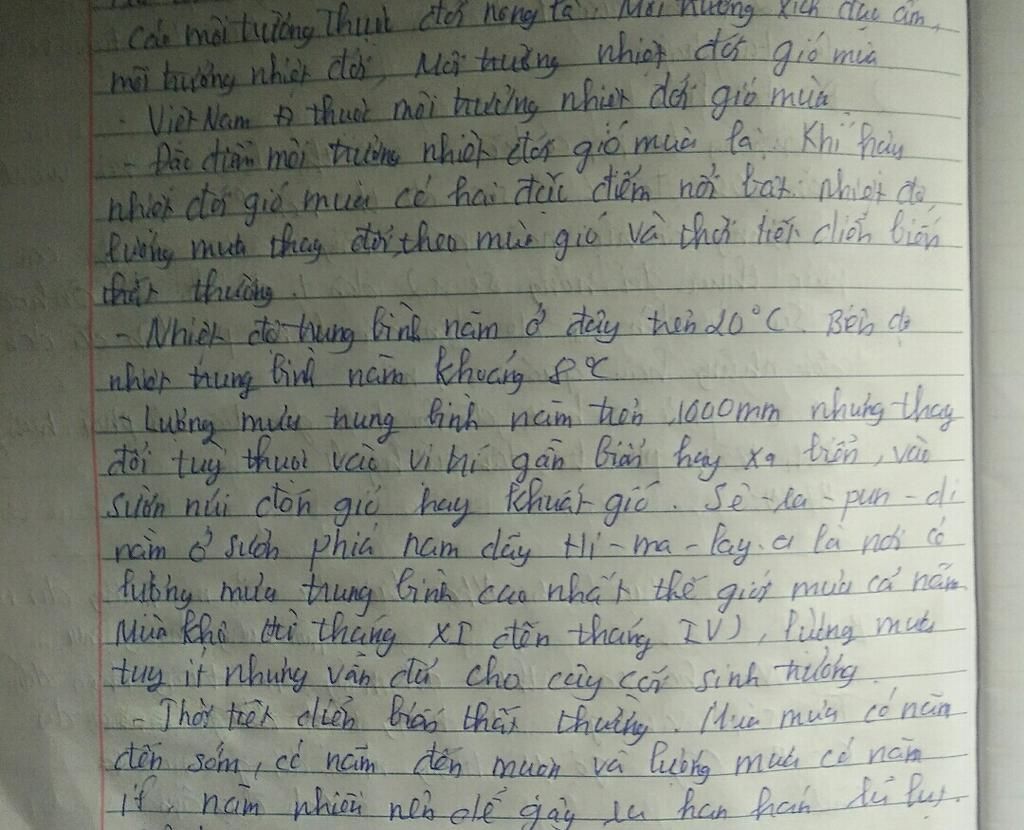 Các môi trường thuộc đới nóng là: Môi trường xích đạo ẩm,
môi trường nhiệt đới, Môi trường nhiệt đới gió mùa
- Việt Nam thuộc môi trường nhiệt đới gió mùa
- Đặc điểm môi trường nhiệt đới gió mùa là: Khí hậu
nhiệt đới gió mùa có hai đặc điểm nổi bật: nhiệt độ,
lượng mưa thay đổi theo mùa gió và thời tiết diễn biến
thất thường.
- Nhiệt độ trung bình năm ở đây trên 20°C. Biên độ
nhiệt trung bình năm khoảng 8°C
- Lượng mưa trung bình năm trên 1000mm nhưng thay
đổi tuỳ thuộc vào vị trí gần biển hay xa biển, vào
sườn núi đón gió hay khuất gió. Sê-ra-pun-di
nằm ở sườn phía nam dãy Hi-ma-lay-a là nơi có
lượng mưa trung bình cao nhất thế giới mưa cả năm
Mùa khô (từ tháng XI đến tháng IV), lượng mưa
tuy ít nhưng vẫn đủ cho cây cối sinh trưởng.
- Thời tiết diễn biến thất thường. Mùa mưa có năm
đến sớm, có năm đến muộn và lượng mưa có năm
ít, năm nhiều nên dễ gây ra hạn hán lũ lụt.